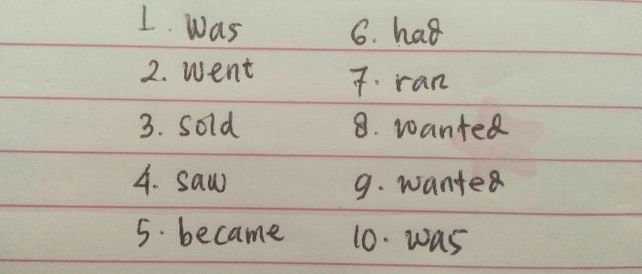 1. was
2. went
3. sold
4. saw
5. became
6. had
7. ran
8. wanted
9. wanted
10. was